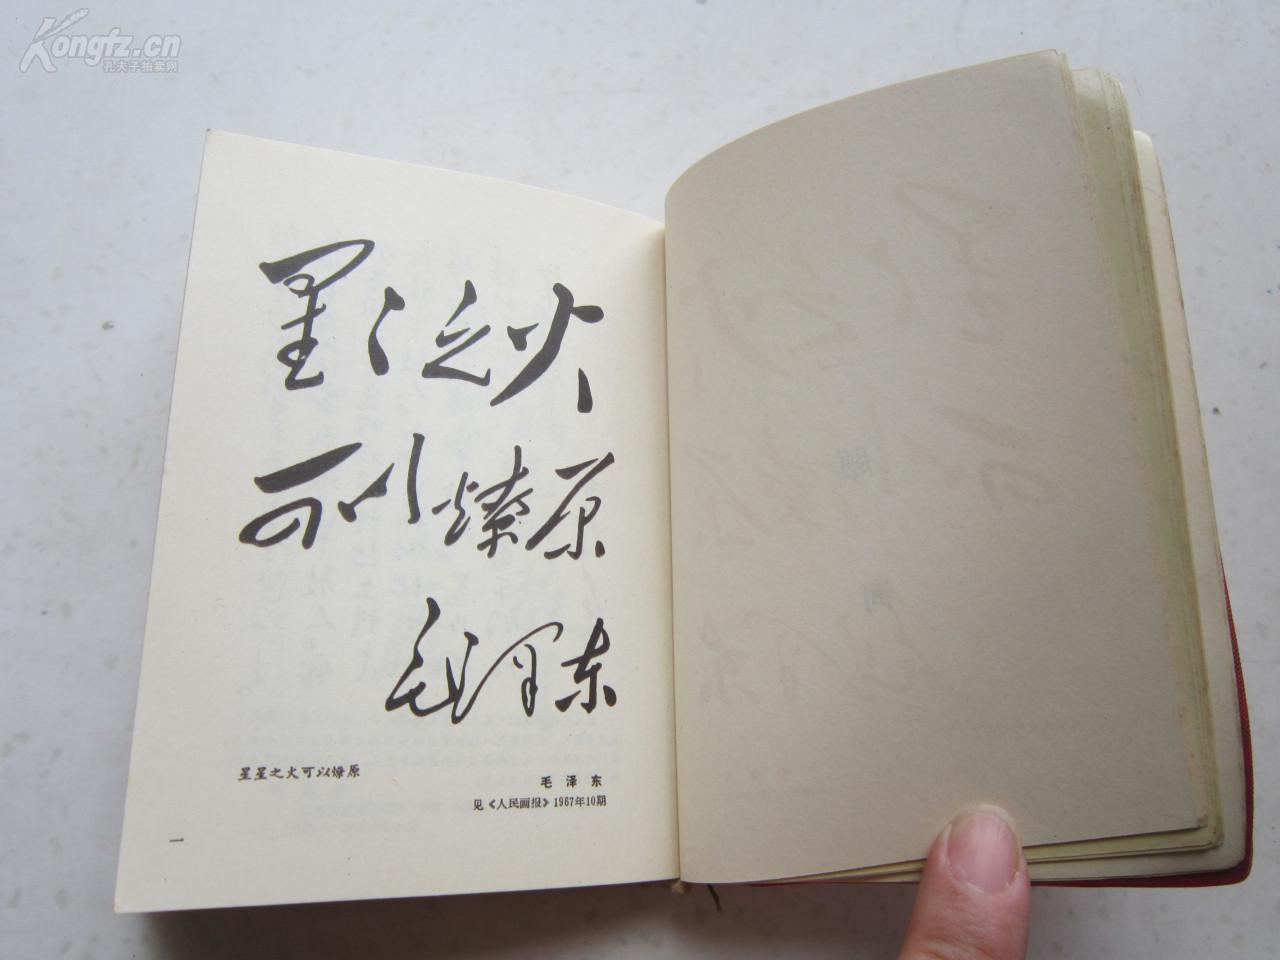 Kongfz.cn
孔夫子拍卖网
星星之火
可以燎原
毛泽东
星星之火可以燎原
毛泽东
见《人民画报》1967年10期
一
题
词